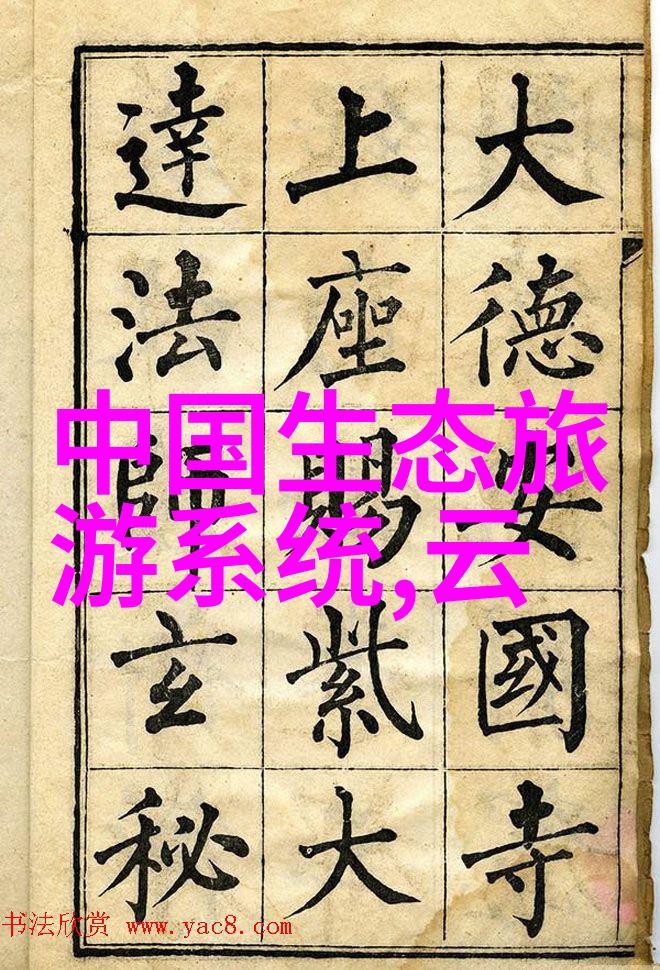 大德安國寺
上座賜紫大
達法師玄秘
中国生态旅
游系统,云
书法欣赏 www.yac8.com